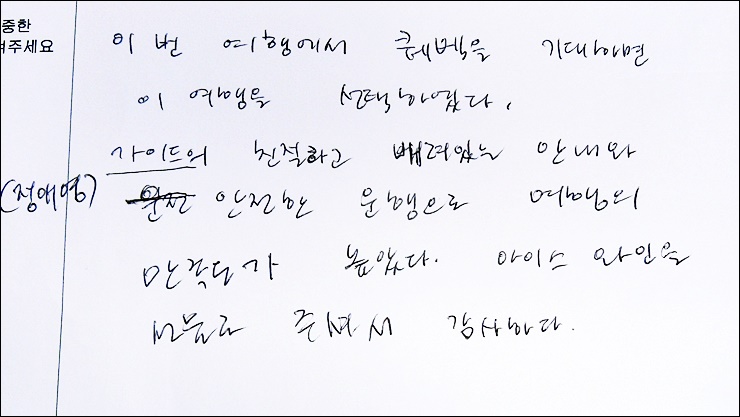 중한
겨주세요
이번 여행에서 퀘벡을 기대하면
이 여행을 선택하였다.
가이드의 친절하고 배려있는 안내와
(정애영) 안전한 운행으로 여행의
만족도가 높았다. 아이스 와인을
선물로 주셔서 감사하다.